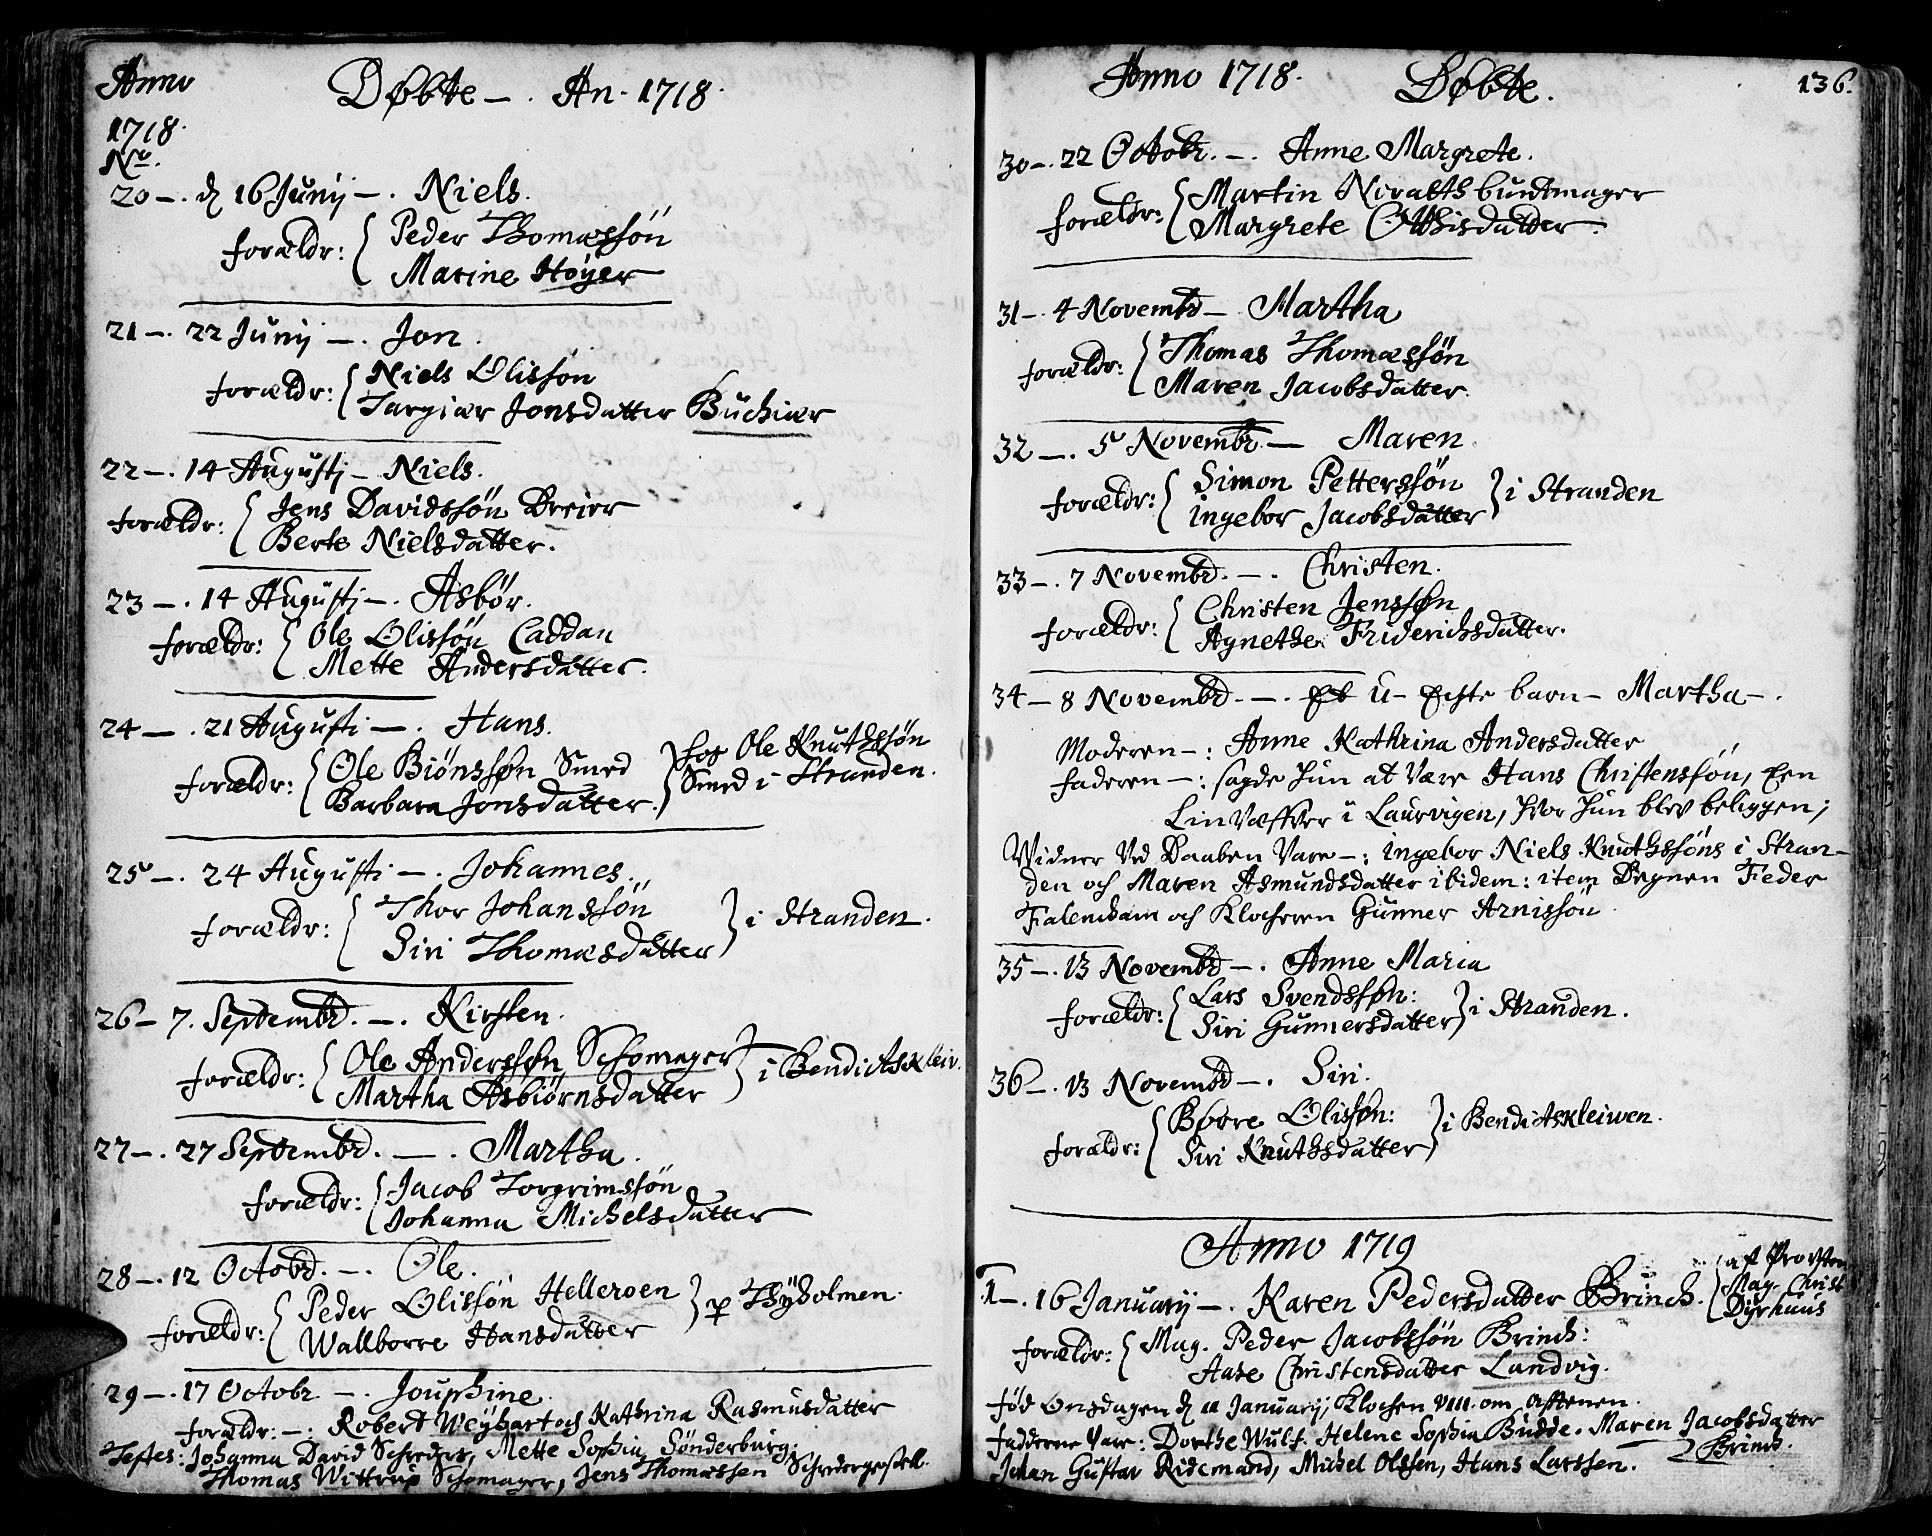 Anno
1718.
No.
Døbte —. An. 1718.
20 —. d 16 Junij —. Niels.
forældr: Peder Thomæssön
Marine Höyer
21 —. 22 Junij —. Jon.
forældr: Niels Olissön
Targiær Jonsdatter Buchiær
22 —. 14 Augustj — Niels.
forældr: Jens Davidssön Dreier
Berte Nielsdatter.
23 —. 14 Augustj —. Asbör.
forældr: Ole Olissön Caddan
Mette Andersdatter.
24 —. 21 Augusti —. Hans.
forældr: Ole Biönssøn Smed
Barbara Jonsdatter.
hos Ole Knuthssøn
Smed i Stranden.
25 —. 24 Augusti —. Johannes.
forældr: Thor Johanssön
Siri Thomæsdatter
i Stranden.
26 — 7. Septembr. —. Kirsten.
forældr: Ole Anderssøn Schomager
Martha Asbiörnsdatter
i Bendictskleiv.
27 —. 27 Septembr. —. Martha.
forældr: Jacob Torgrimssön
Johanna Michelsdatter
28 —. 12 Octobr. —. Ole.
forældr: Peder Olissön Helleroen
Wallborre Hansdatter
p Thÿholmen.
29 —. 17 Octobr —. Jouphine.
forældr: —: Robert Weÿhart och Kathrina Rasmusdatter
Testes: Johanna David Schreders, Mette Sophia Sönderburg:
Thomas Wittrup Schomager, Jens Thomæssen Schredergesell.
Anno 1718. Døbte.
136.
30 —. 22 Octobr. —. Anne Margrete.
forældr: Martin Niralth buntmager
Margrete Otthisdatter.
31 —. 4 Novembr — Martha
forældr: Thomas Thomæssön
Maren Jacobsdatter.
32 —. 5 Novembr. — Maren
forældr: Simon Petterssön
ingebor Jacobsdatter
i Stranden
33 —. 7 Novembr. —. Christen.
forældr: Christen Jenssøn
Agnethe Friderichsdatter.
34 — 8 Novembr. —. Et U- Echte barn — Martha —.
Moderen —: Anne Kathrina Andersdatter
faderen —: sagde hun at være Hans Christenssön, Een
Linvæffver i Laurvigen, hvor hun blev beliggen;
Widner ved Daaben vare —: ingebor Niels Knuthssöns i Stran-
den och Maren Asmundsdatter ibidem: item Degnen Peder
Falencham och Klocheren Gunner Arnissön.
35 —. 13 Novembr —. Anne Maria
forældr: Lars Svendssøn:
Siri Gunnersdatter
i Stranden.
36 —. 13 Novembr —. Siri.
forældr: Børre Olissøn:
Siri Knuthsdatter
i Bendictskleiwen.
Anno 1719
1 —. 16 Januarij —. Karen Pedersdatter Brinch.
af Provsten
Mag. Christ
Dyrhuus
forældr: Mag. Peder Jacobssön Brinch:
Aase Christensdatter Landvig.
fød Onsdagen d 11 Januarij, Klochen VIII. om Afftenen.
fadderne vare: Dorthe Wulf. Helene Sophia Budde. Maren Jacobsdatter
Brinch.
Johan Gustav Ridemand, Michel Olssen, Hans Larssen.